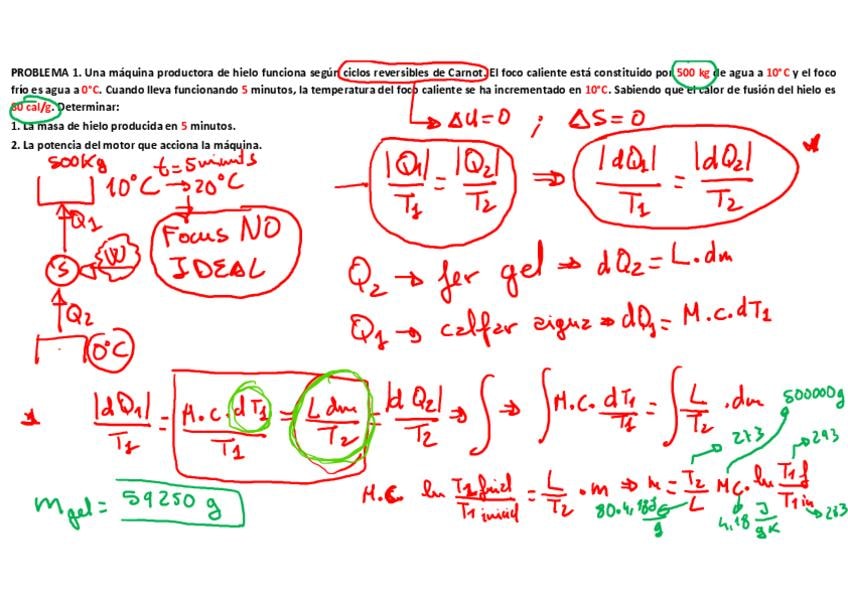 PROBLEMA 1. Una máquina productora de hielo funciona según ciclos reversibles de Carnot. El foco caliente está constituido por 500 kg de agua a 10°C y el foco
frío es agua a 0°C. Cuando lleva funcionando 5 minutos, la temperatura del foco caliente se ha incrementado en 10°C. Sabiendo que el calor de fusión del hielo es
80 cal/g. Determinar:
1. La masa de hielo producida en 5 minutos.
2. La potencia del motor que acciona la máquina.
ΔU=0 ; ΔS=0
500Kg t=5 minuts
10°C → 20°C
|Q1|/T1 = |Q2|/T2 ⇒ |dQ1|/T1 = |dQ2|/T2 *
Q1
Focus NO
IDEAL
S W
Q2
0°C
Q2 → fer gel ⇒ dQ2 = L.dm
Q1 → calfar aigua ⇒ dQ1 = M.c.dT1
* |dQ1|/T1 = M.c.dT1/T1 = L dm/T2 = |dQ2|/T2 ⇒ ∫ ⇒ ∫ M.c. dT1/T1 = ∫ L/T2 . dm
500000g
273
293
M.c. ln T1 final/T1 inicial = L/T2 . m ⇒ m = T2/L M C. ln T1f/T1in
80.4,18 J/g
4,18 J/gK
283
m gel = 59250 g